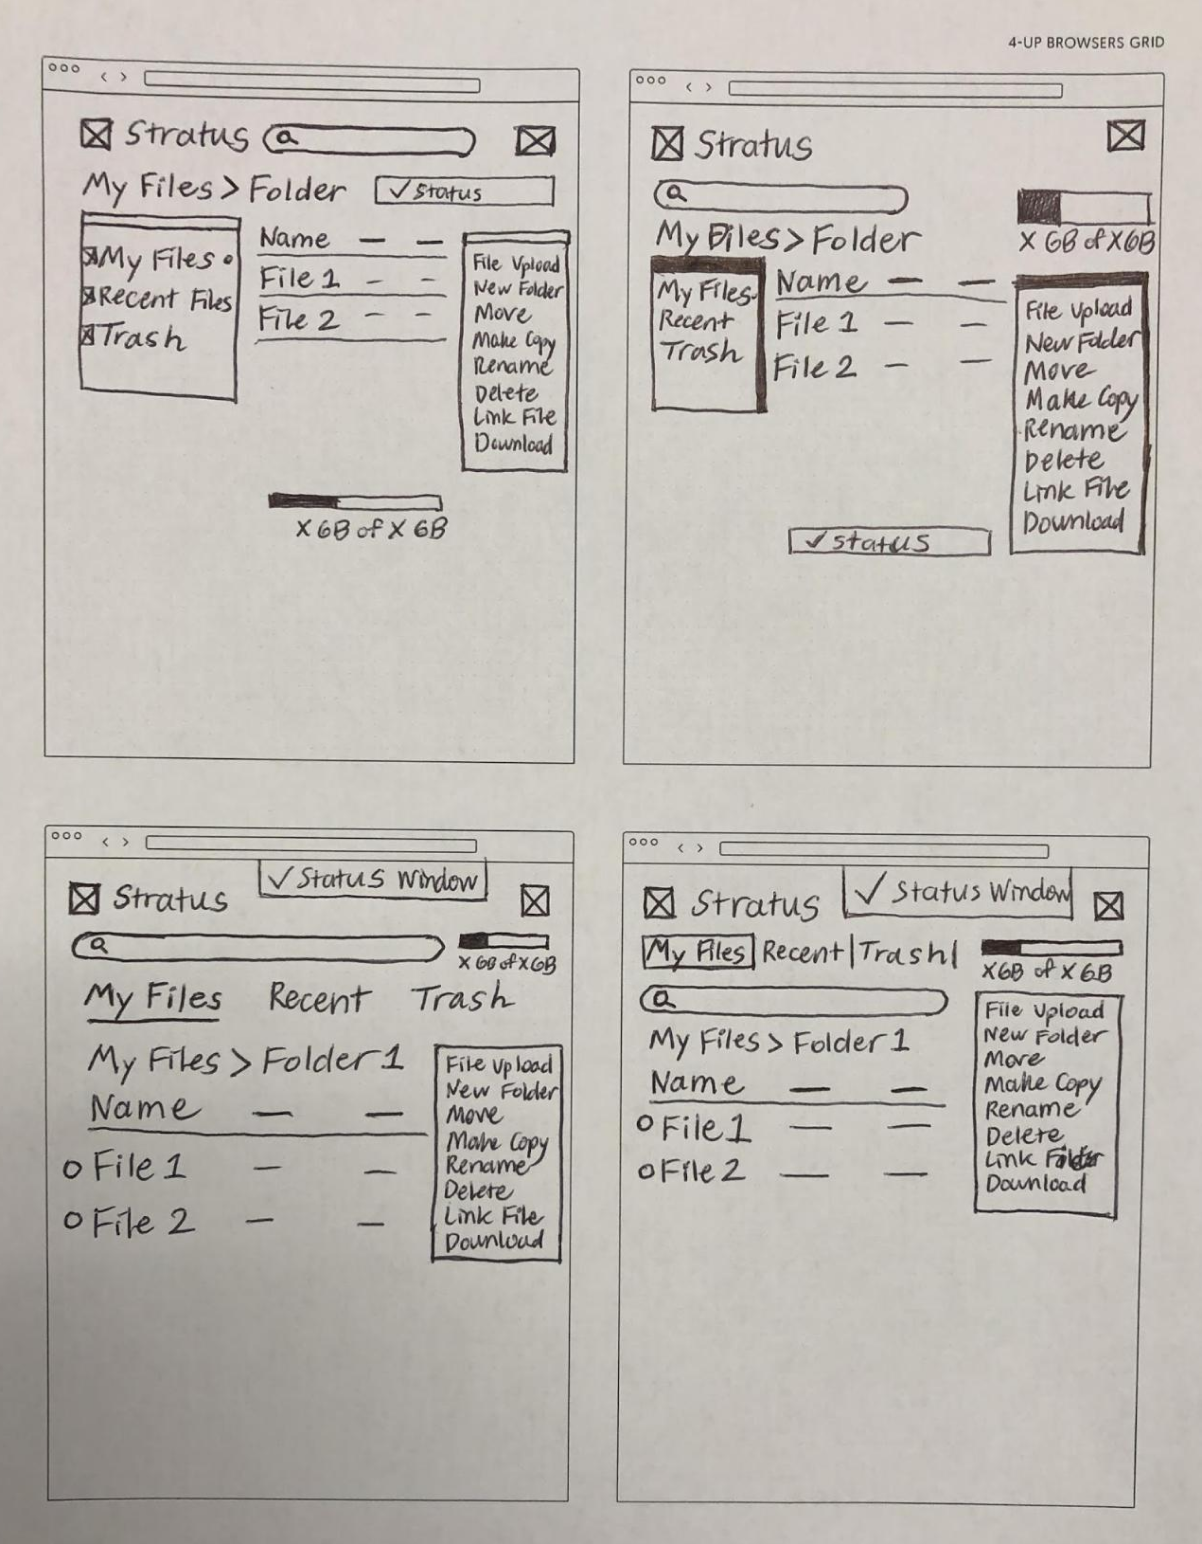 4-UP BROWSERS GRID
Stratus
My Files > Folder
✓ Status
My Files
Recent Files
Trash
Name
File 1
File 2
File Upload
New Folder
Move
Make Copy
Rename
Delete
Link File
Download
X GB of X GB
Stratus
X GB of X GB
My Files > Folder
My Files
Recent
Trash
Name
File 1
File 2
File Upload
New Folder
Move
Make Copy
Rename
Delete
Link File
Download
✓ Status
✓ Status Window
Stratus
X GB of X GB
My Files Recent Trash
My Files > Folder 1
Name
File 1
File 2
File Upload
New Folder
Move
Make Copy
Rename
Delete
Link File
Download
✓ Status Window
Stratus
My Files Recent | Trash |
X GB of X GB
My Files > Folder 1
Name
File 1
File 2
File Upload
New Folder
Move
Make Copy
Rename
Delete
Link
Download